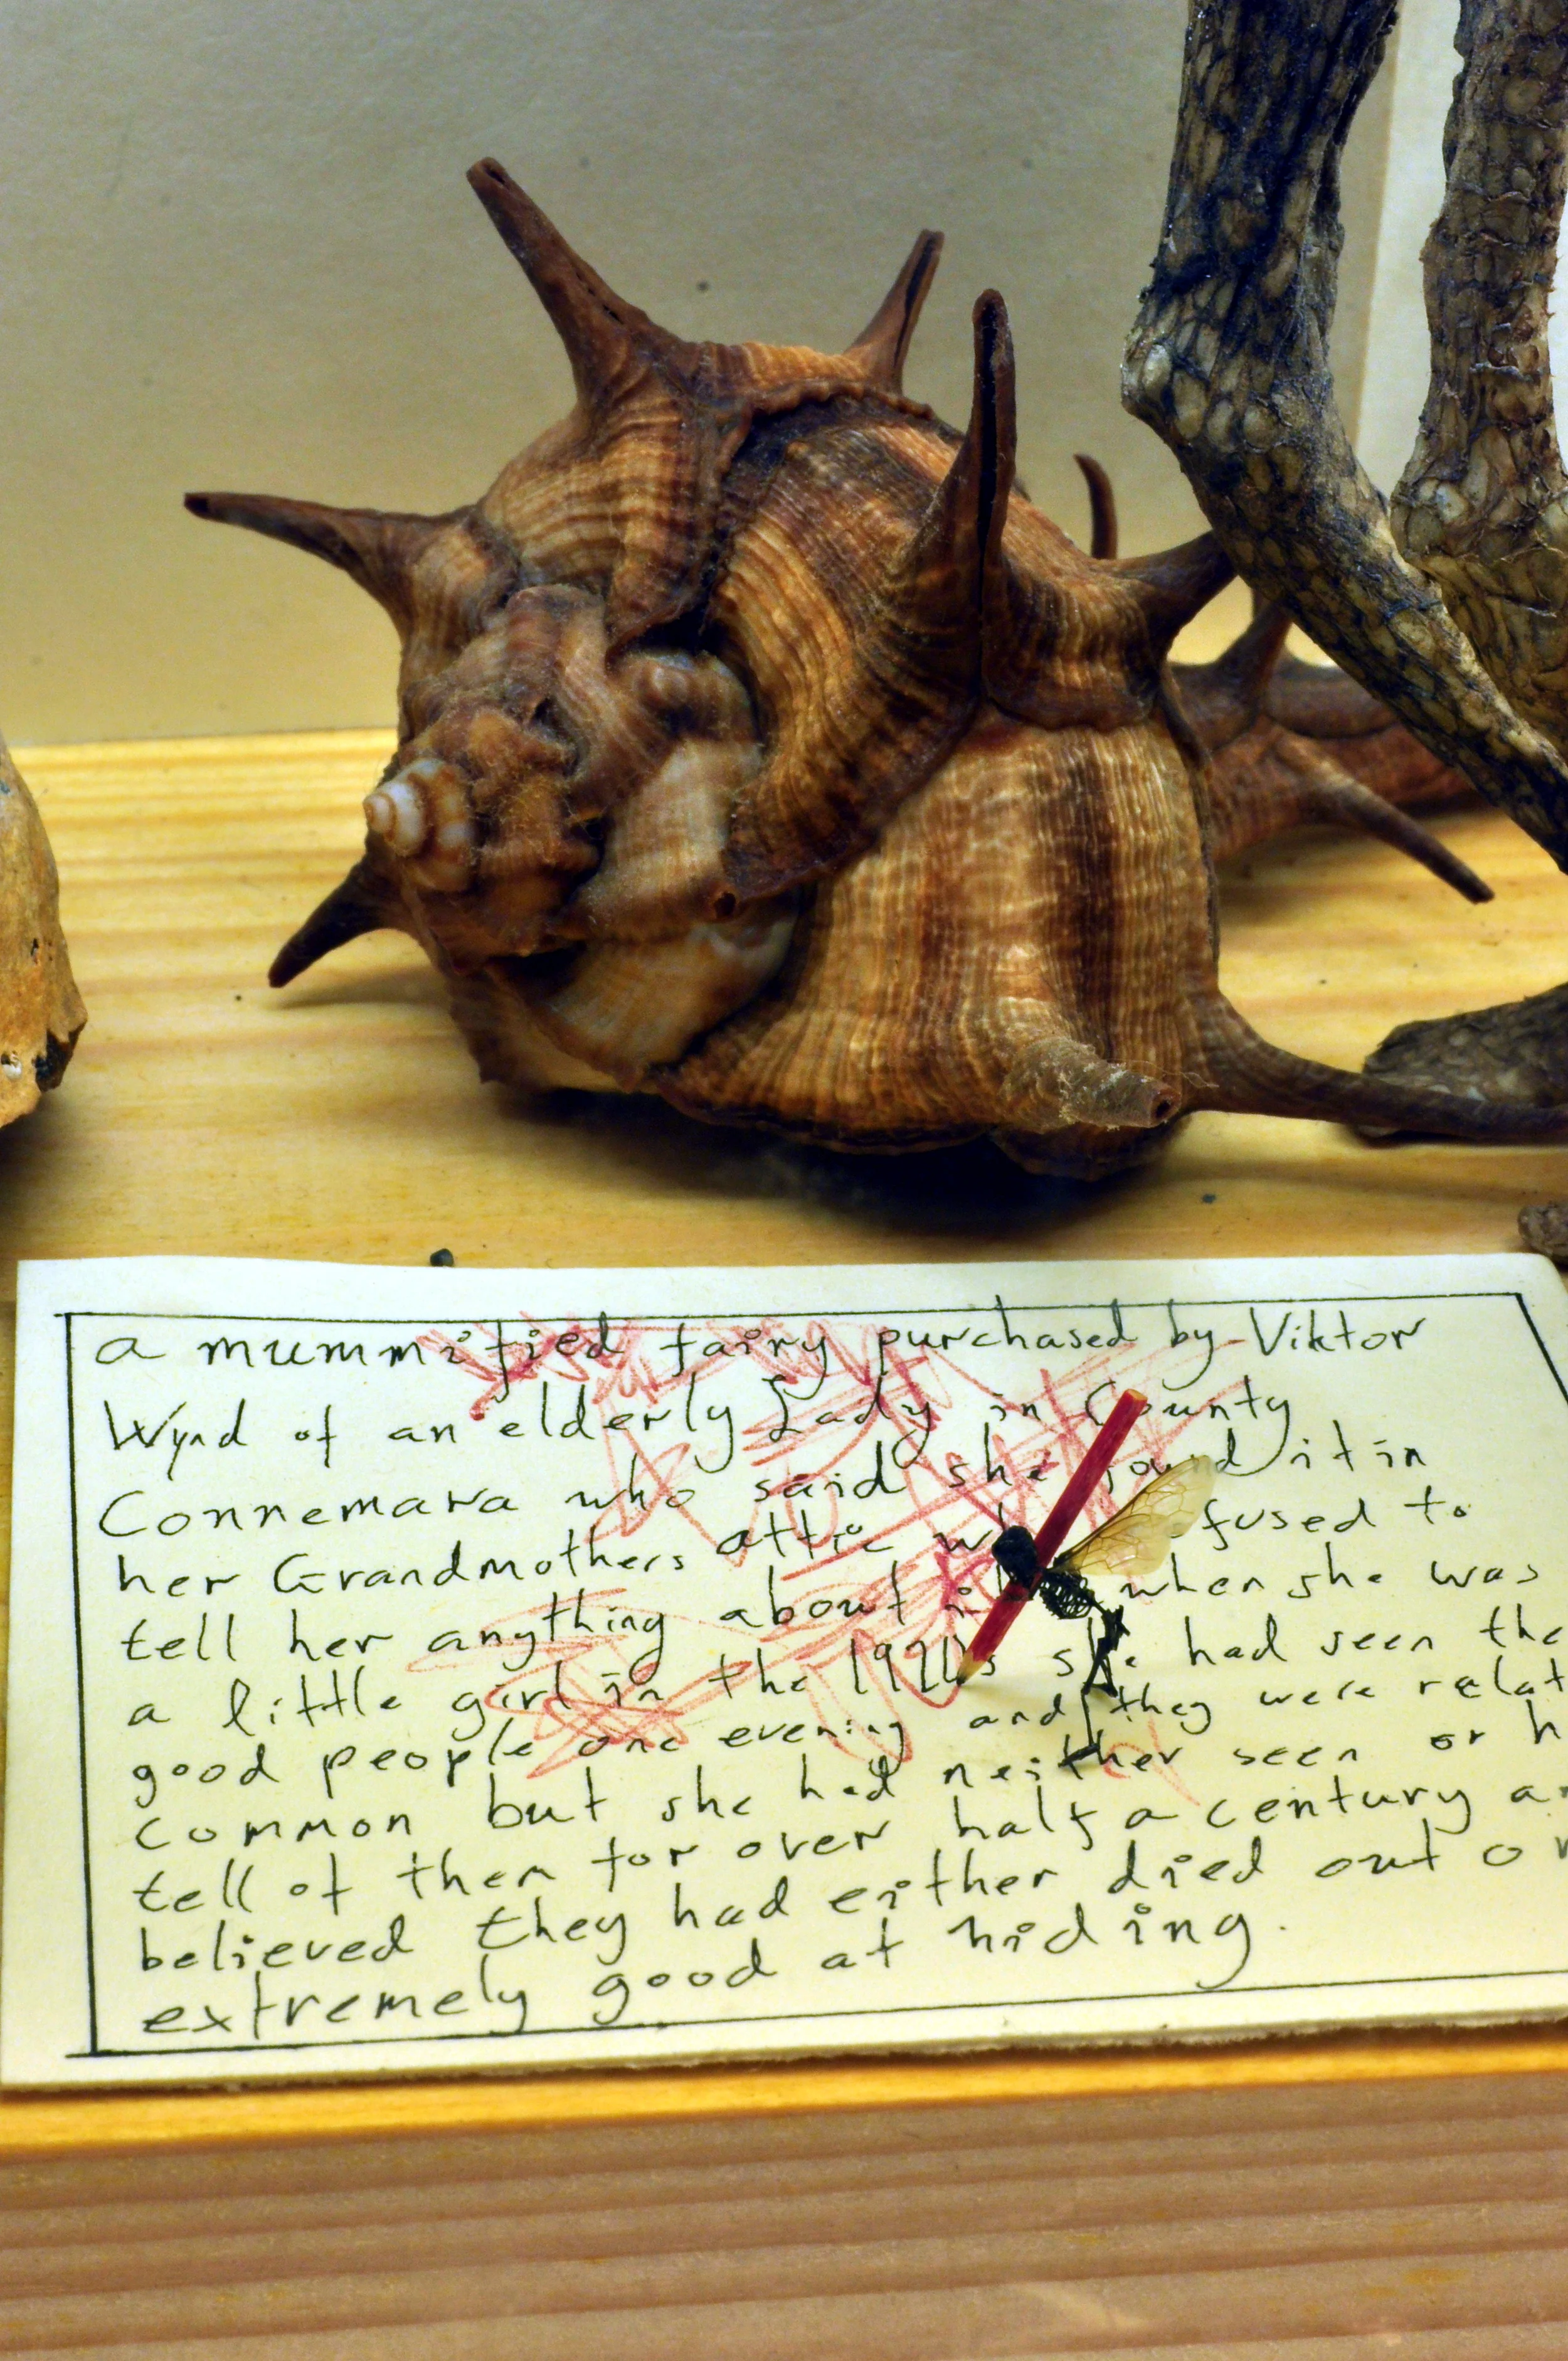 a mummified fairy purchased by Viktor
Wynd of an elderly Lady in County
Connemara who said she found it in
her Grandmothers attic fused to
tell her anything about when she was
a little girl in the she had seen the
good people one evening and they were relat
common but she had neither seen or h
tell of them for over half a century an
believed they had either died out or
extremely good at hiding.